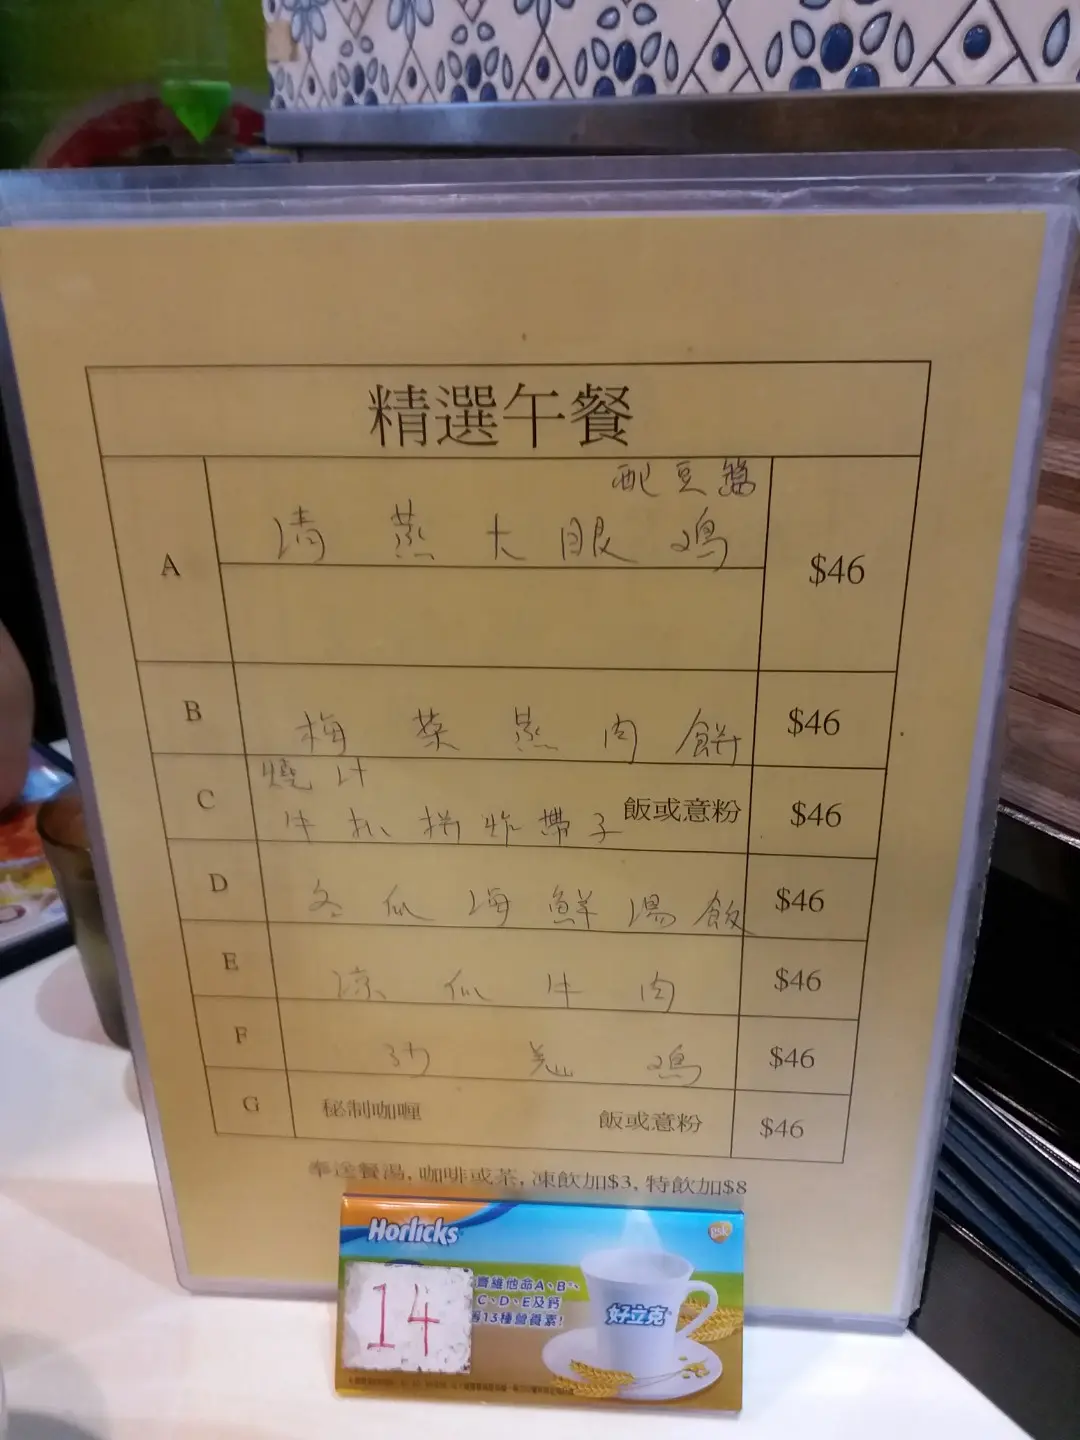 精選午餐
配豆醬
A 清蒸大眼鸡 $46
B 梅菜蒸肉餅 $46
燒汁
C 牛扒拼炸帶子 飯或意粉 $46
D 冬瓜海鮮湯飯 $46
E 凉瓜牛肉 $46
F 鸡 $46
G 秘制咖喱 飯或意粉 $46
奉送餐湯, 咖啡或茶, 凍飲加$3, 特飲加$8
Horlicks
gsk
14
維他命A、B
C、D、E及鈣
等13種營養素!
好立克